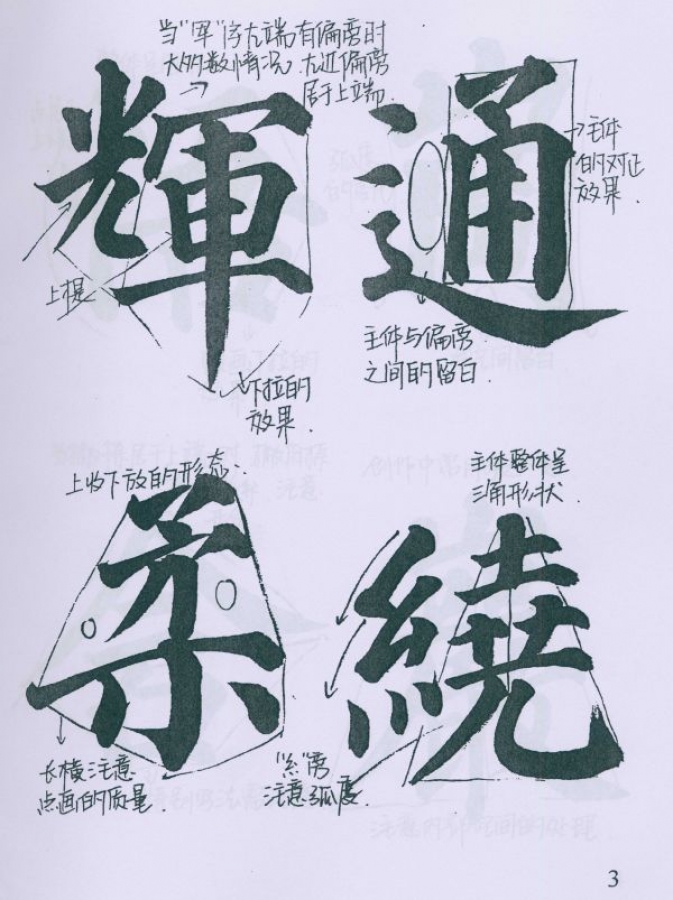 当“军”字左端有偏旁时
大多数情况.左边偏旁
居于上端.
輝
上提
下拉的
效果.
通
主体
的对正
效果.
主体与偏旁
之间的留白.
上收下放的形态.
柔
长横注意
点画的质量.
主体整体呈
三角形状.
繞
“糹”旁
注意弧度.
3